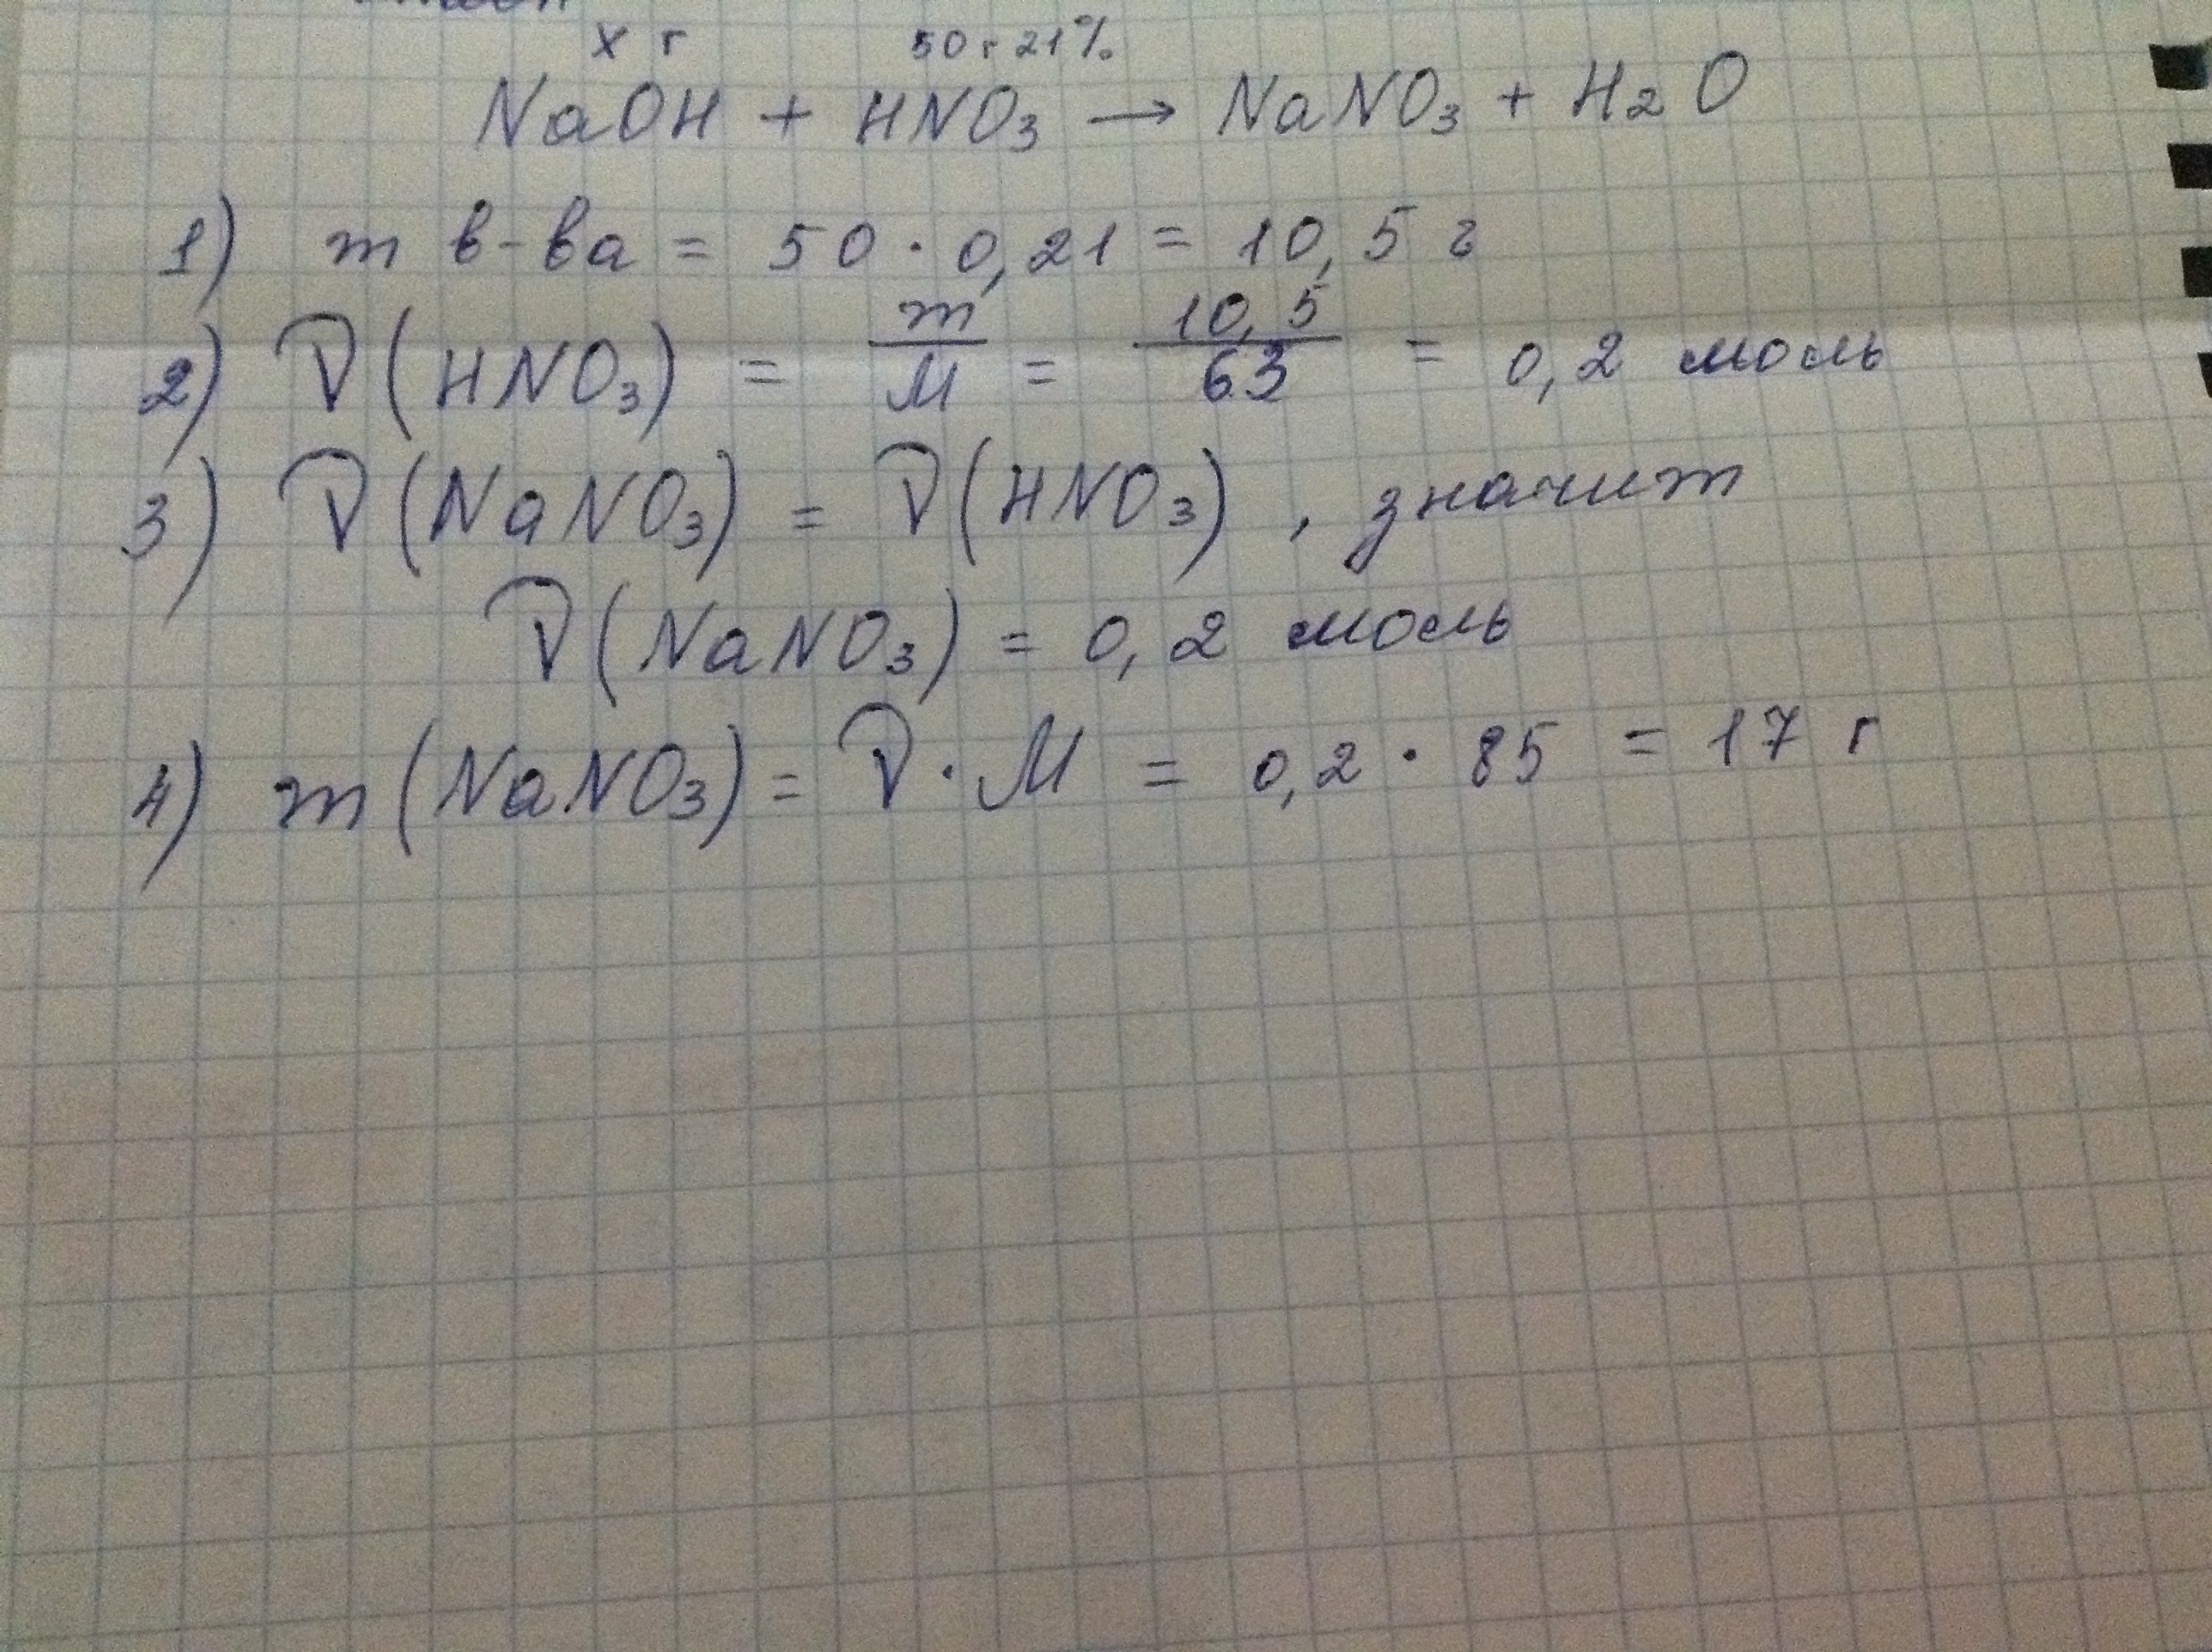 х г 50 г 21%
NaOH + HNO₃ → NaNO₃ + H₂O
1) m в-ва = 50 · 0,21 = 10,5 г
2) ν(HNO₃) = m/M = 10,5/63 = 0,2 моль
3) ν(NaNO₃) = ν(HNO₃), значит
ν(NaNO₃) = 0,2 моль
4) m(NaNO₃) = ν · M = 0,2 · 85 = 17 г